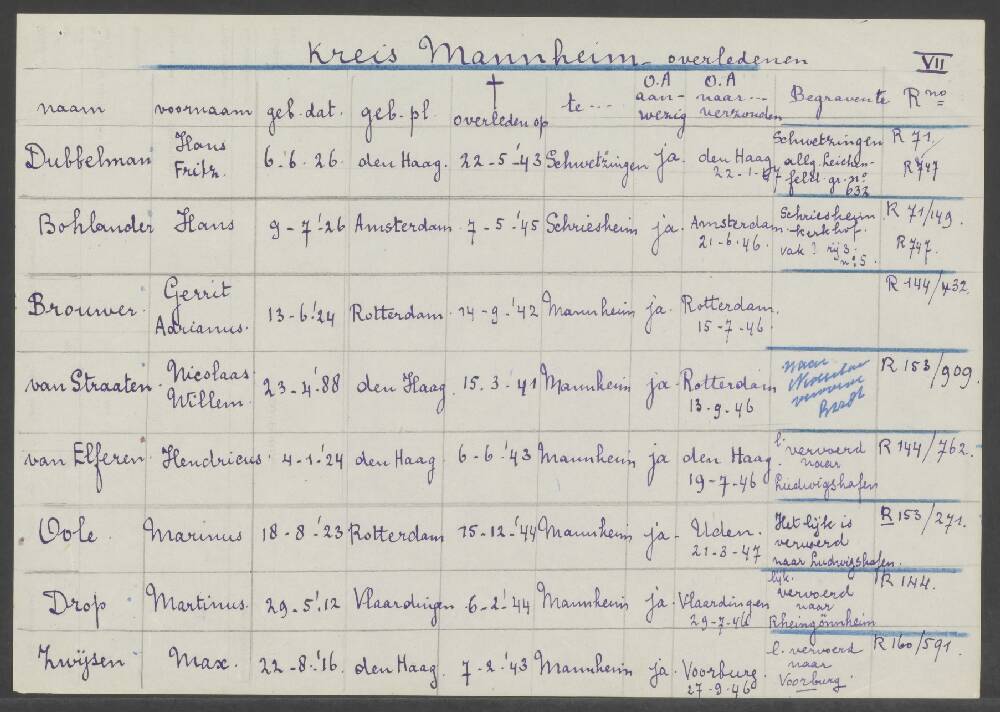 Kreis Mannheim overledenen VII
naam voornaam geb. dat. geb. pl. † overleden op te ... O.A aan- wezig O.A naar ... verzonden Begravente R no
Dubbelman Hans Fritz. 6-6-26. den Haag. 22-5-'43 Schwetzingen ja. den Haag 22-1-47 Schwetzingen allg. Leichen- feld gr. no 632 R 71/ R 747
Bohlander Hans 9-7-'26 Amsterdam. 7-5-'45 Schriesheim ja. Amsterdam. 21-6-46. Schriesheim kerkhof. vak? rij 3. no. 5. R 71/149. R 747.
Brouwer. Gerrit Adrianus. 13-6-'24 Rotterdam. 14-9-'42 Mannheim ja. Rotterdam. 15-7-46. R 144/732.
van Straaten. Nicolaas Willem. 23-4-'88 den Haag. 15.3-41 Mannheim ja. Rotterdam 13-9-46. naar R 153/909.
van Elferen. Hendricus. 4-1-'24 den Haag. 6-6-'43 Mannheim ja den Haag 19-7-46 l. vervoerd naar Ludwigshafen R 144/762.
Oole. Marinus 18-8-'23 Rotterdam 15-12-'44 Mannheim ja. Uden. 21-3-47 Het lijk is vervoerd naar Ludwigshafen. R 153/271.
Drop Martinus. 29-5-'12 Vlaardingen. 6-2-'44 Mannheim ja. Vlaerdingen 29-7-46 lijk. vervoerd naar Rheingönnheim R 144.
Zwijsen Max. 22-8-'16. den Haag. 7-2-'43 Mannheim ja. Voorburg. 27-9-46 l. vervoerd naar Voorburg. R 160/591.